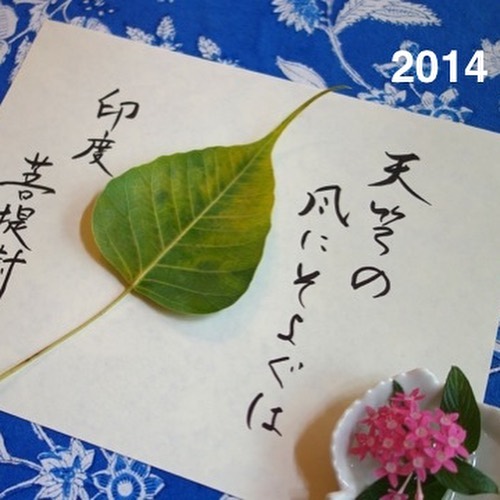 2014
天竺の
風にそよぐは
印度
菩提樹